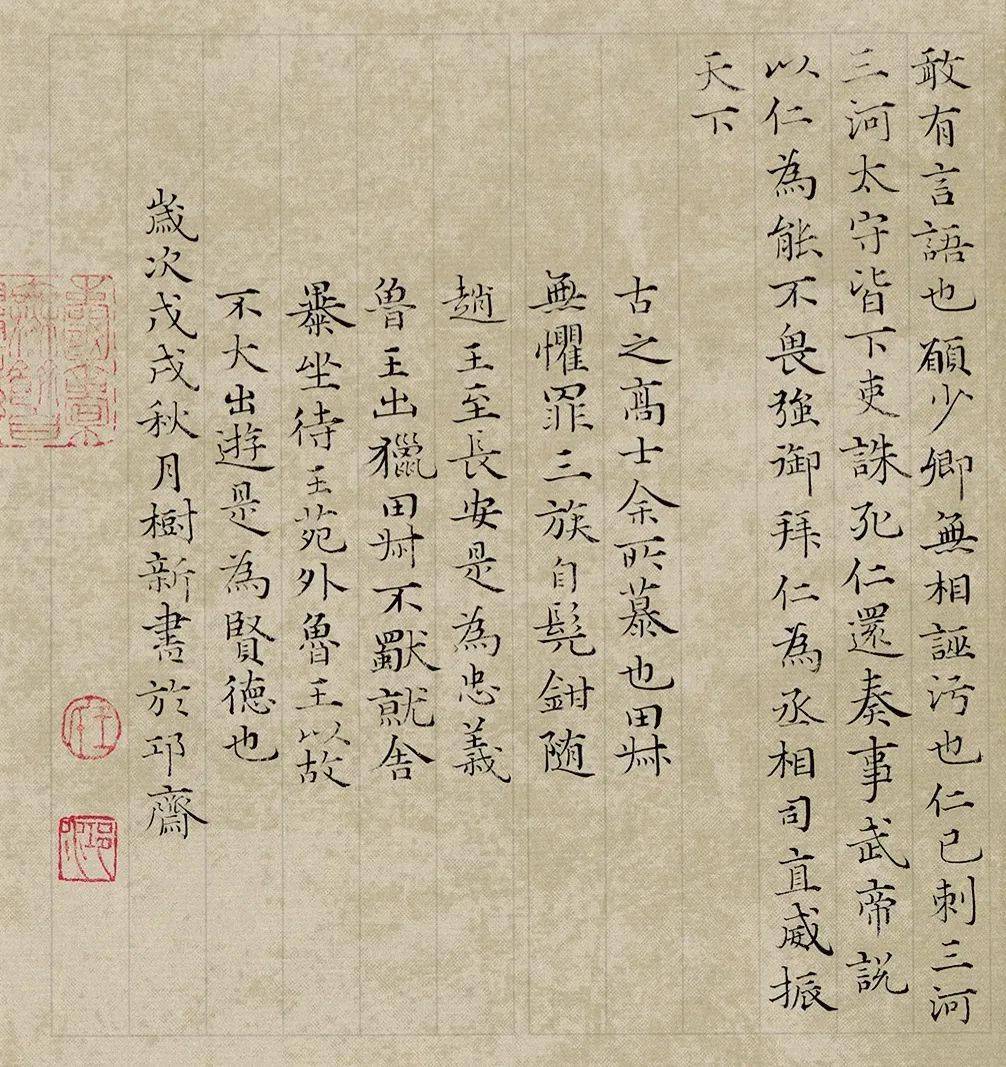 敢有言語也願少卿無相誣污也仁已刺三河
三河太守皆下吏誅死仁還奏事武帝說
以仁為能不畏強御拜仁為丞相司直威振
天下
古之高士余所慕也田叔
無懼罪三族自髡鉗随
趙王至長安是為忠義
魯王出獵田叔不厭就舍
暴坐待王苑外魯王以故
不大出遊是為賢德也
歲次戊戌秋月樹新書於邛齋